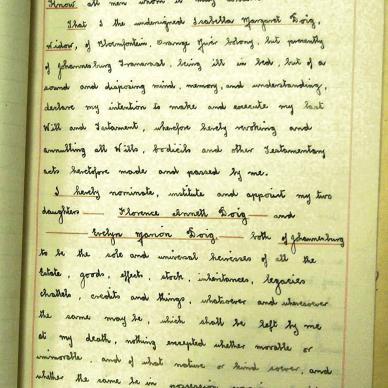 Know all men whom it may
That I the undersigned Isabella Margaret Doig,
Widow, of Bloemfontein, Orange River Colony, but presently
of Johannesburg Transvaal, being ill in bed, but of a
sound and disposing mind, memory, and understanding,
declare my intention to make and execute my last
Will and Testament, wherefore hereby revoking and
annulling all Wills, Codicils and other Testamentary
acts heretofore made and passed by me.
I hereby nominate, institute and appoint my two
daughters — Florence Annett Doig — and
— Evelyn Marion Doig — both of Johannesburg
to be the sole and universal heiresses of all the
Estate, goods, effects, stock, inheritances, legacies
chattels, credits and things, whatsoever and wheresoever
the same may be, which shall be left by me
at my death, nothing excepted whether movable or
immovable, and of what nature or kind soever, and
whether the same be in possession